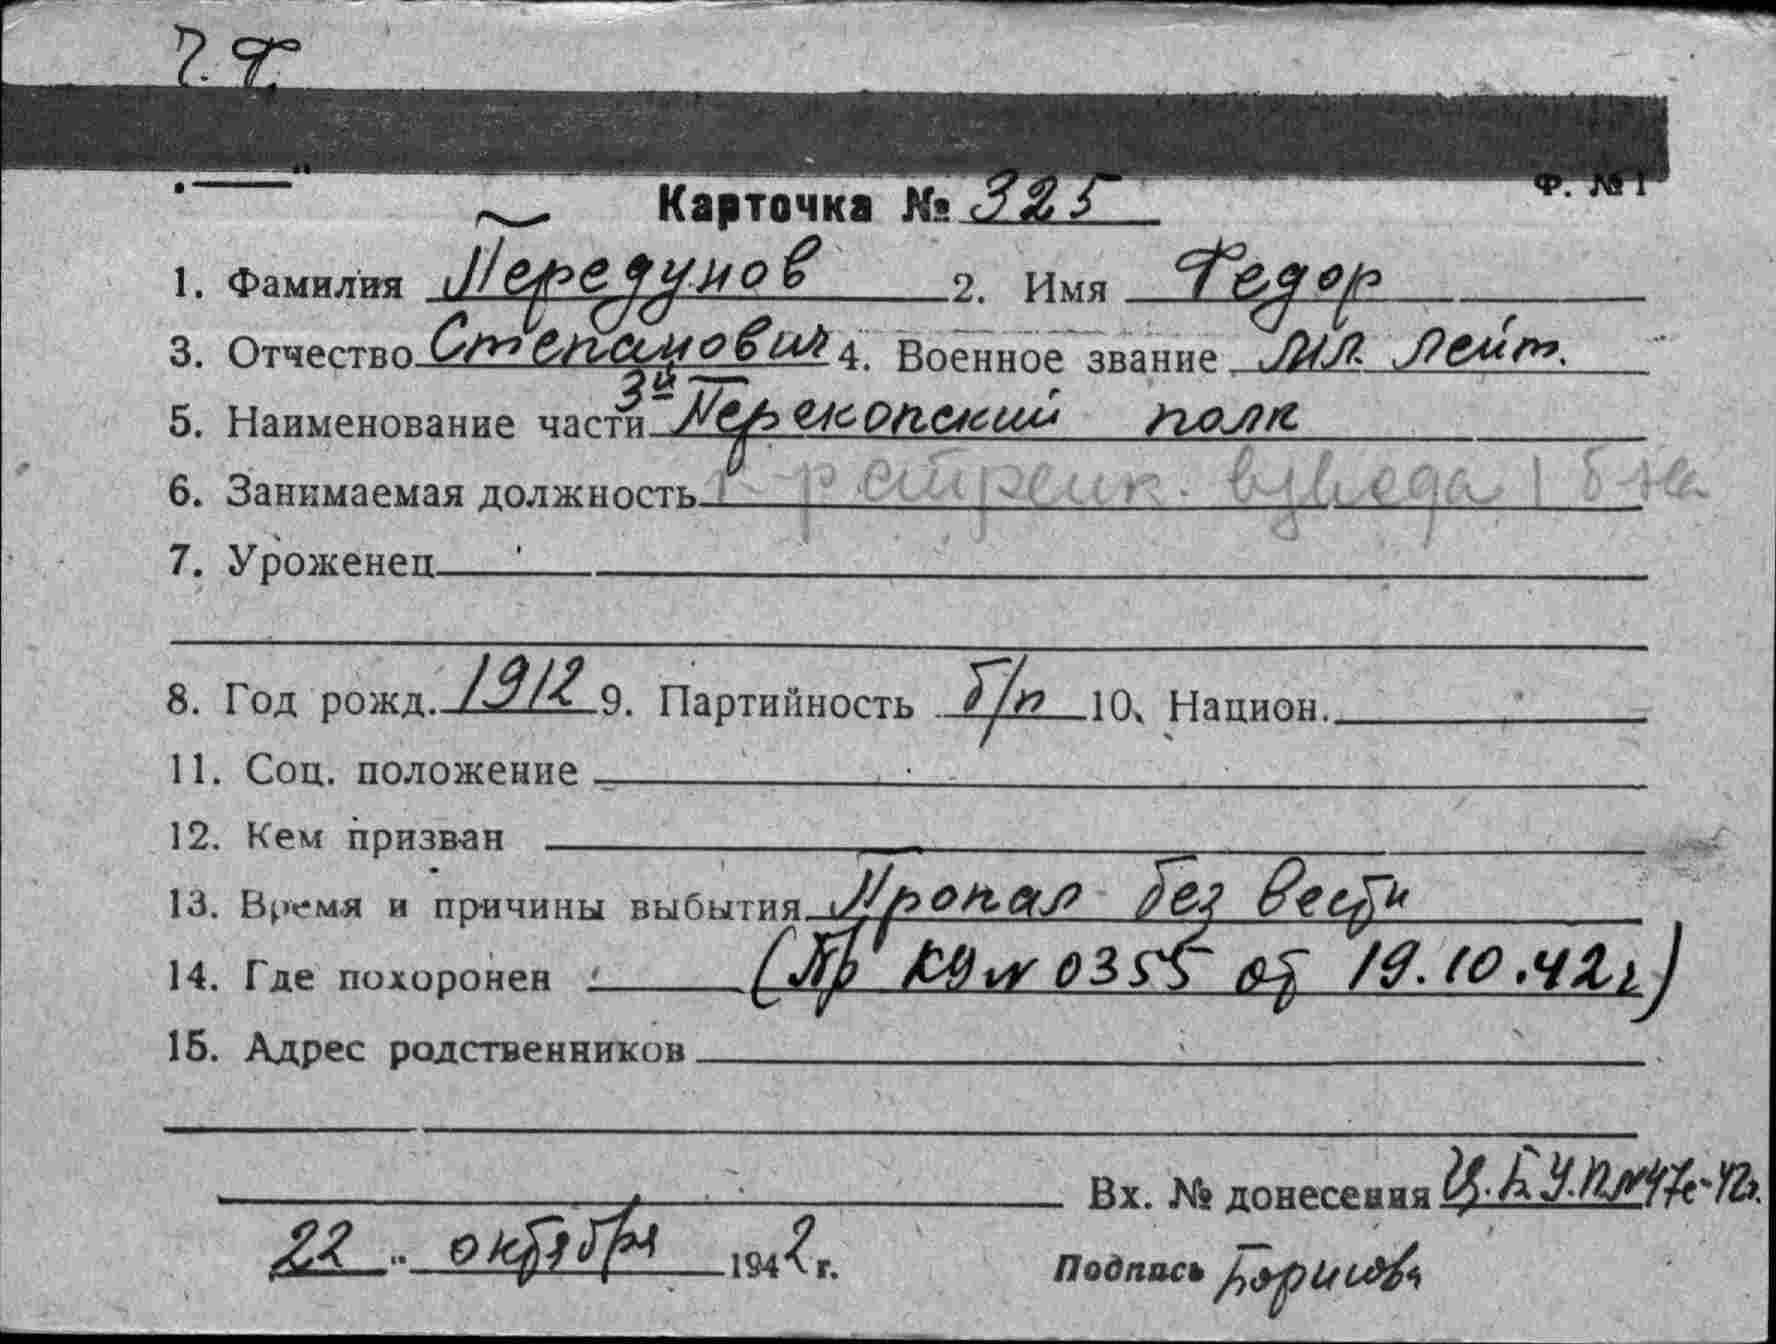 Ч.Ф.
Ф. № 1
Карточка № 325
1. Фамилия Передунов 2. Имя Федор
3. Отчество Степанович 4. Военное звание мл. лейт.
5. Наименование части 3й Перекопский полк
6. Занимаемая должность к-р стрелк. взвода 1 б-на
7. Уроженец
8. Год рожд. 1912 9. Партийность б/п 10. Национ.
11. Соц. положение
12. Кем призван
13. Время и причины выбытия Пропал без вести
14. Где похоронен (Пр КУ № 0355 от 19.10.42г)
15. Адрес родственников
Вх. № донесения Ц.Б.У.П. № 47с-42г.
22 " октября 1942 г.
Подпись Борисова